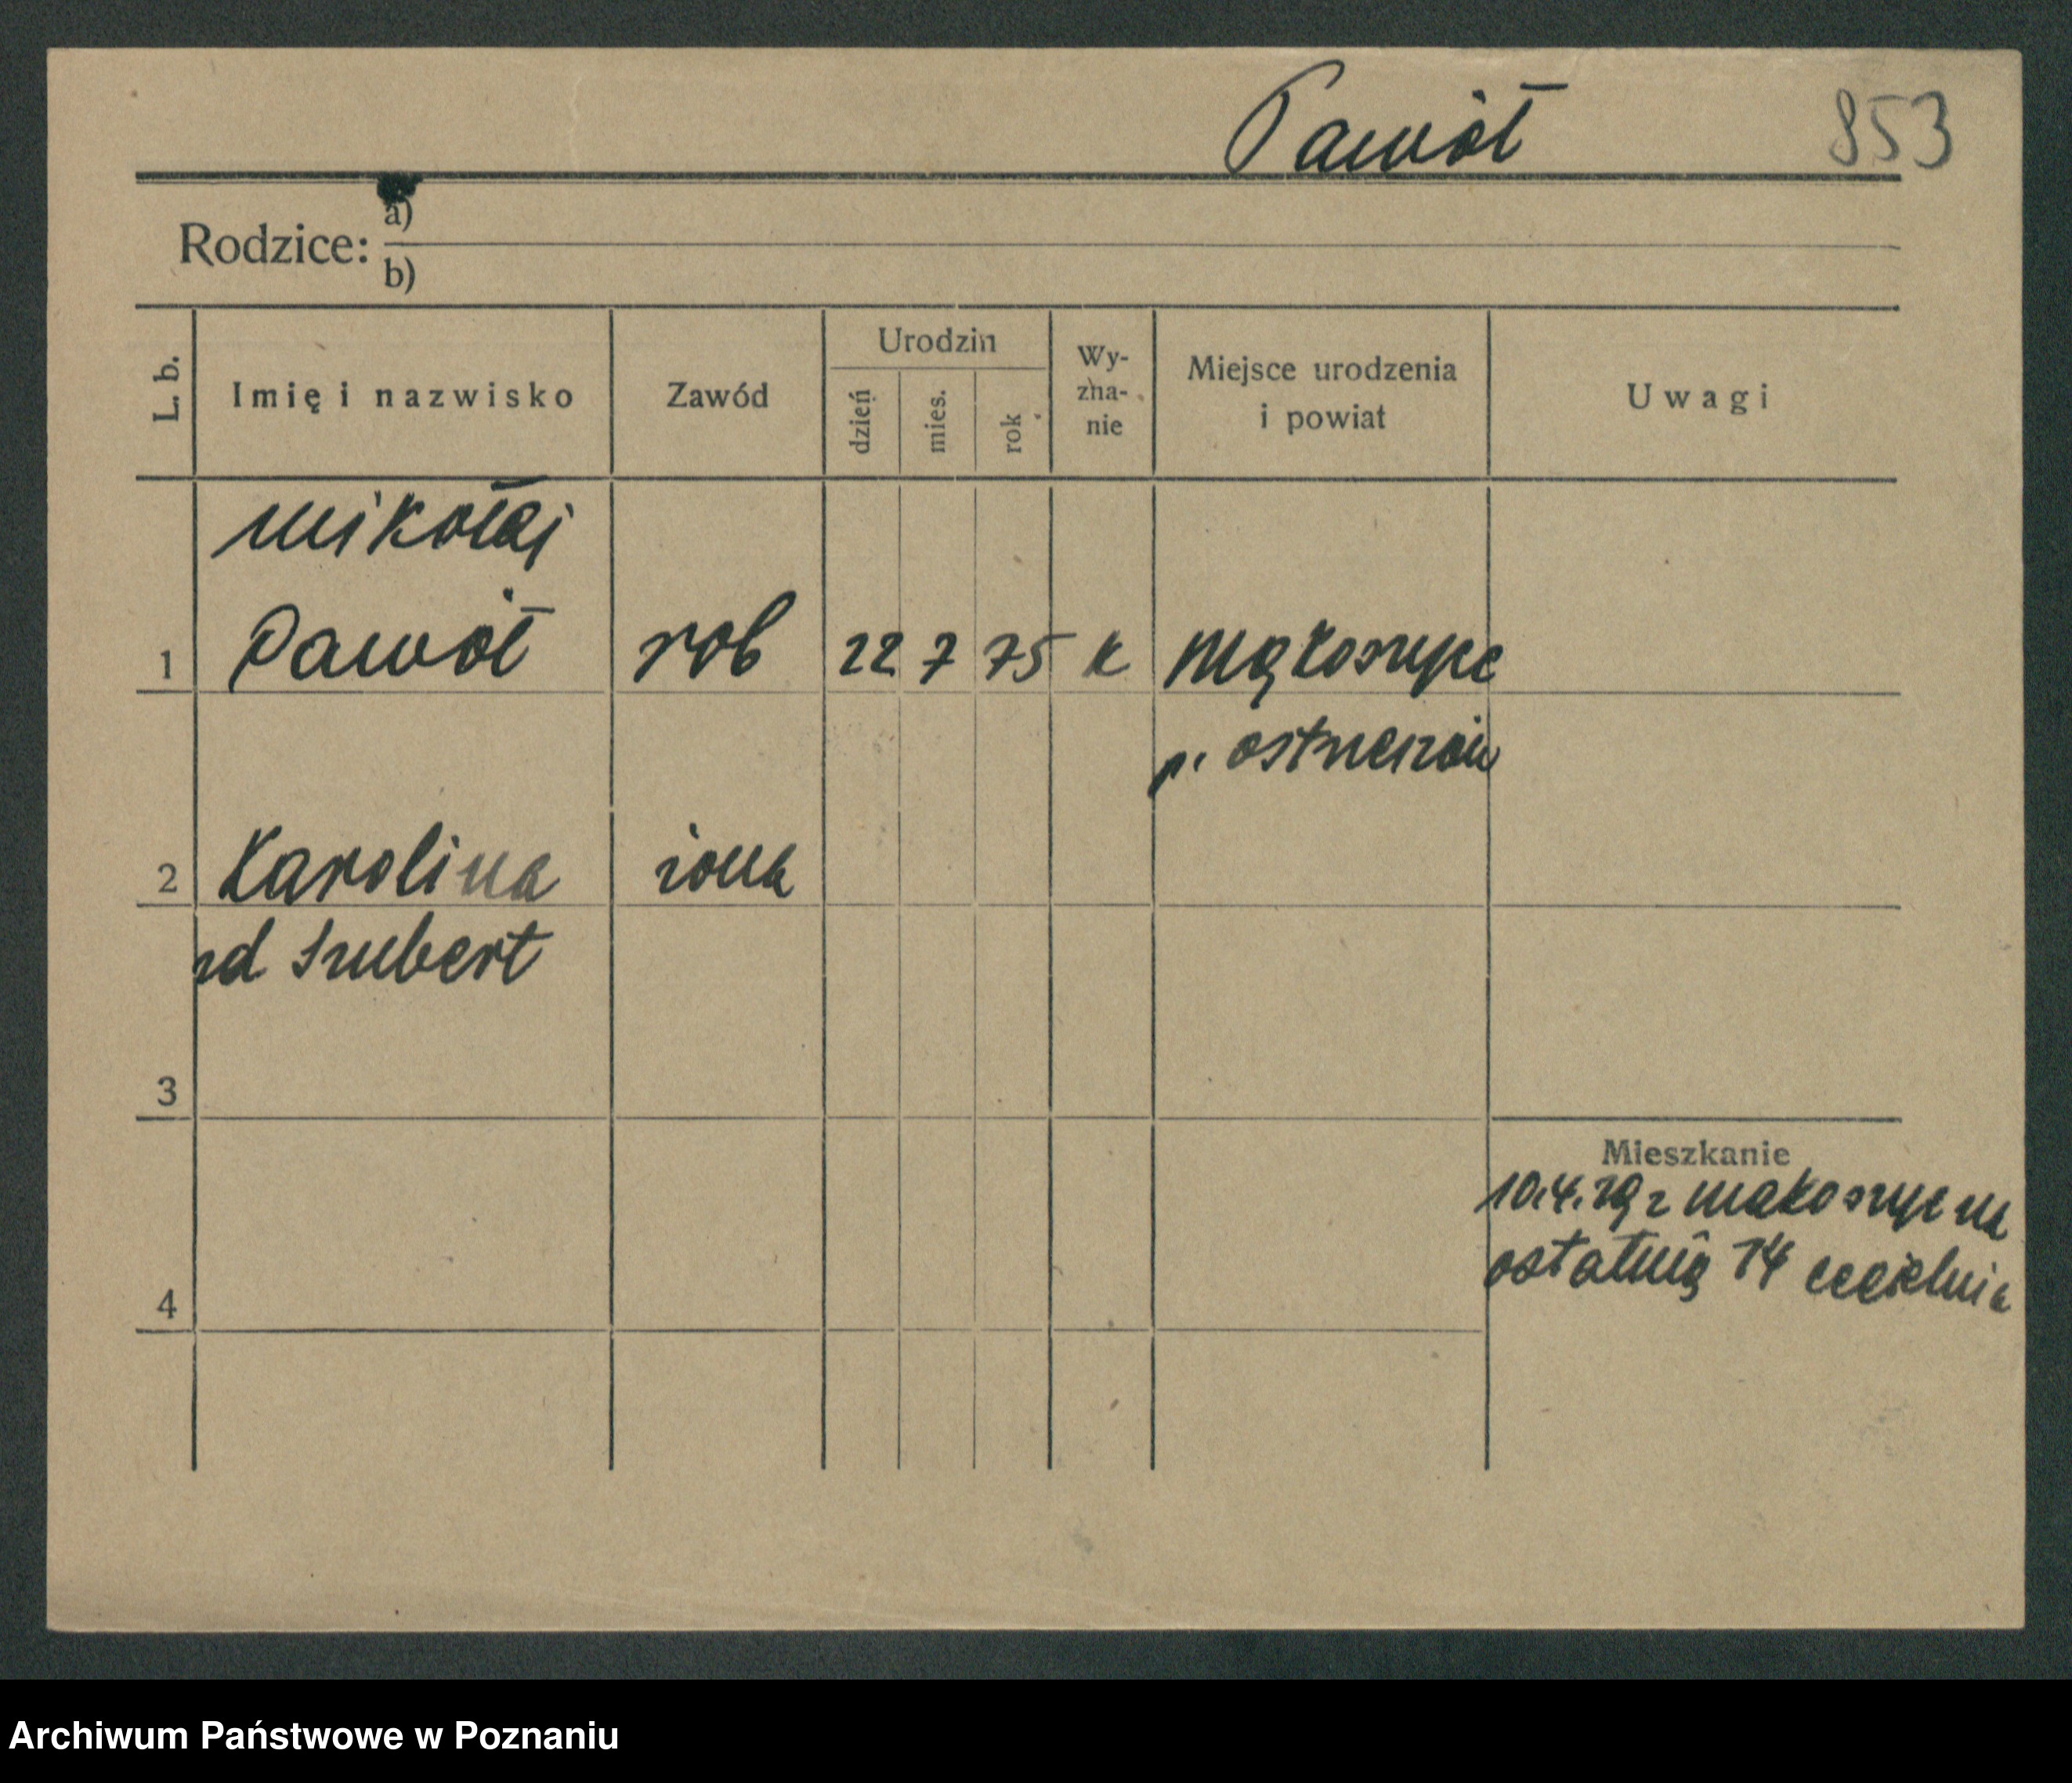 Pawół 853
Rodzice: a)
b)
L. b. Imię i nazwisko Zawód Urodzin dzień mies. rok Wy-zna-nie Miejsce urodzenia i powiat Uwagi
Mikołaj
1 Pawół rob 22 7 75 k Mąkoszyce
p. ostrzeszów
2 Karolina żona
zd Szubert
3
Mieszkanie
10.4.29 z Makoszyc na
4 ostatnią 14 cegielnia
Archiwum Państwowe w Poznaniu